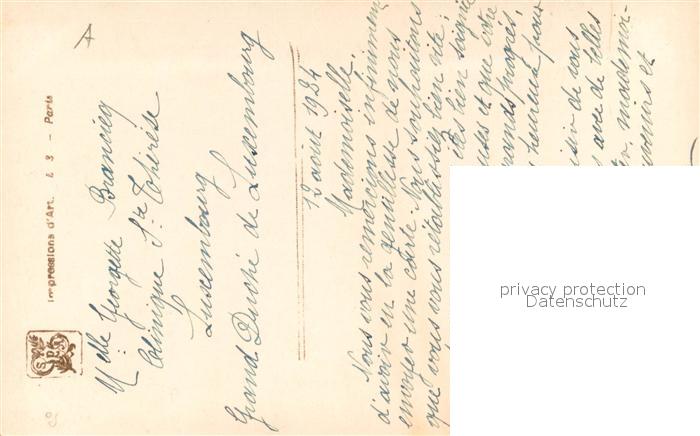 Impressions d'Art. L 3 - Paris
Melle Georgette
Clinique Ste Thérèse
Luxembourg
Grand Duché de Luxembourg
12 août 1924
Mademoiselle,
Nous vous remercions infiniment
d'avoir eu la gentillesse de nous
envoyer une carte. Nous souhaitons
que vous vous rétablissiez bien vite,
bien soignée
et que votre
grands progrès,
heureux pour
de vous
avec de telles
mademoi-
et
privacy protection
Datenschutz